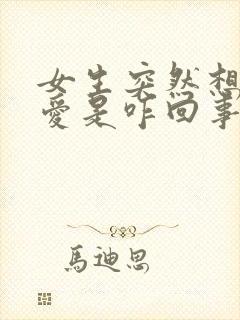 女生突然想
愛是咋回事
馬迪思